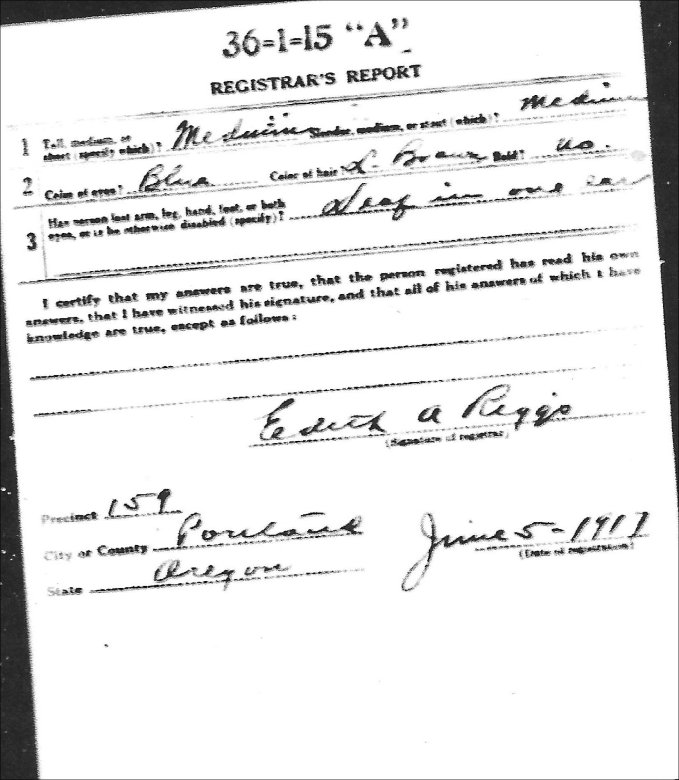 36=1=15 "A"
REGISTRAR'S REPORT
1 Tall, medium, or short (specify which)? Medium Slender, medium, or stout (which)? Medium
2 Color of eyes? Blue Color of hair? L. Brown Bald? no.
3 Has person lost arm, leg, hand, foot, or both eyes, or is he otherwise disabled (specify)? Deaf in one ear
I certify that my answers are true, that the person registered has read his own
answers, that I have witnessed his signature, and that all of his answers of which I have
knowledge are true, except as follows:
Edith A Riggs
(Signature of registrar)
Precinct 159
City or County Portland
State Oregon
June 5-1917
(Date of registration)